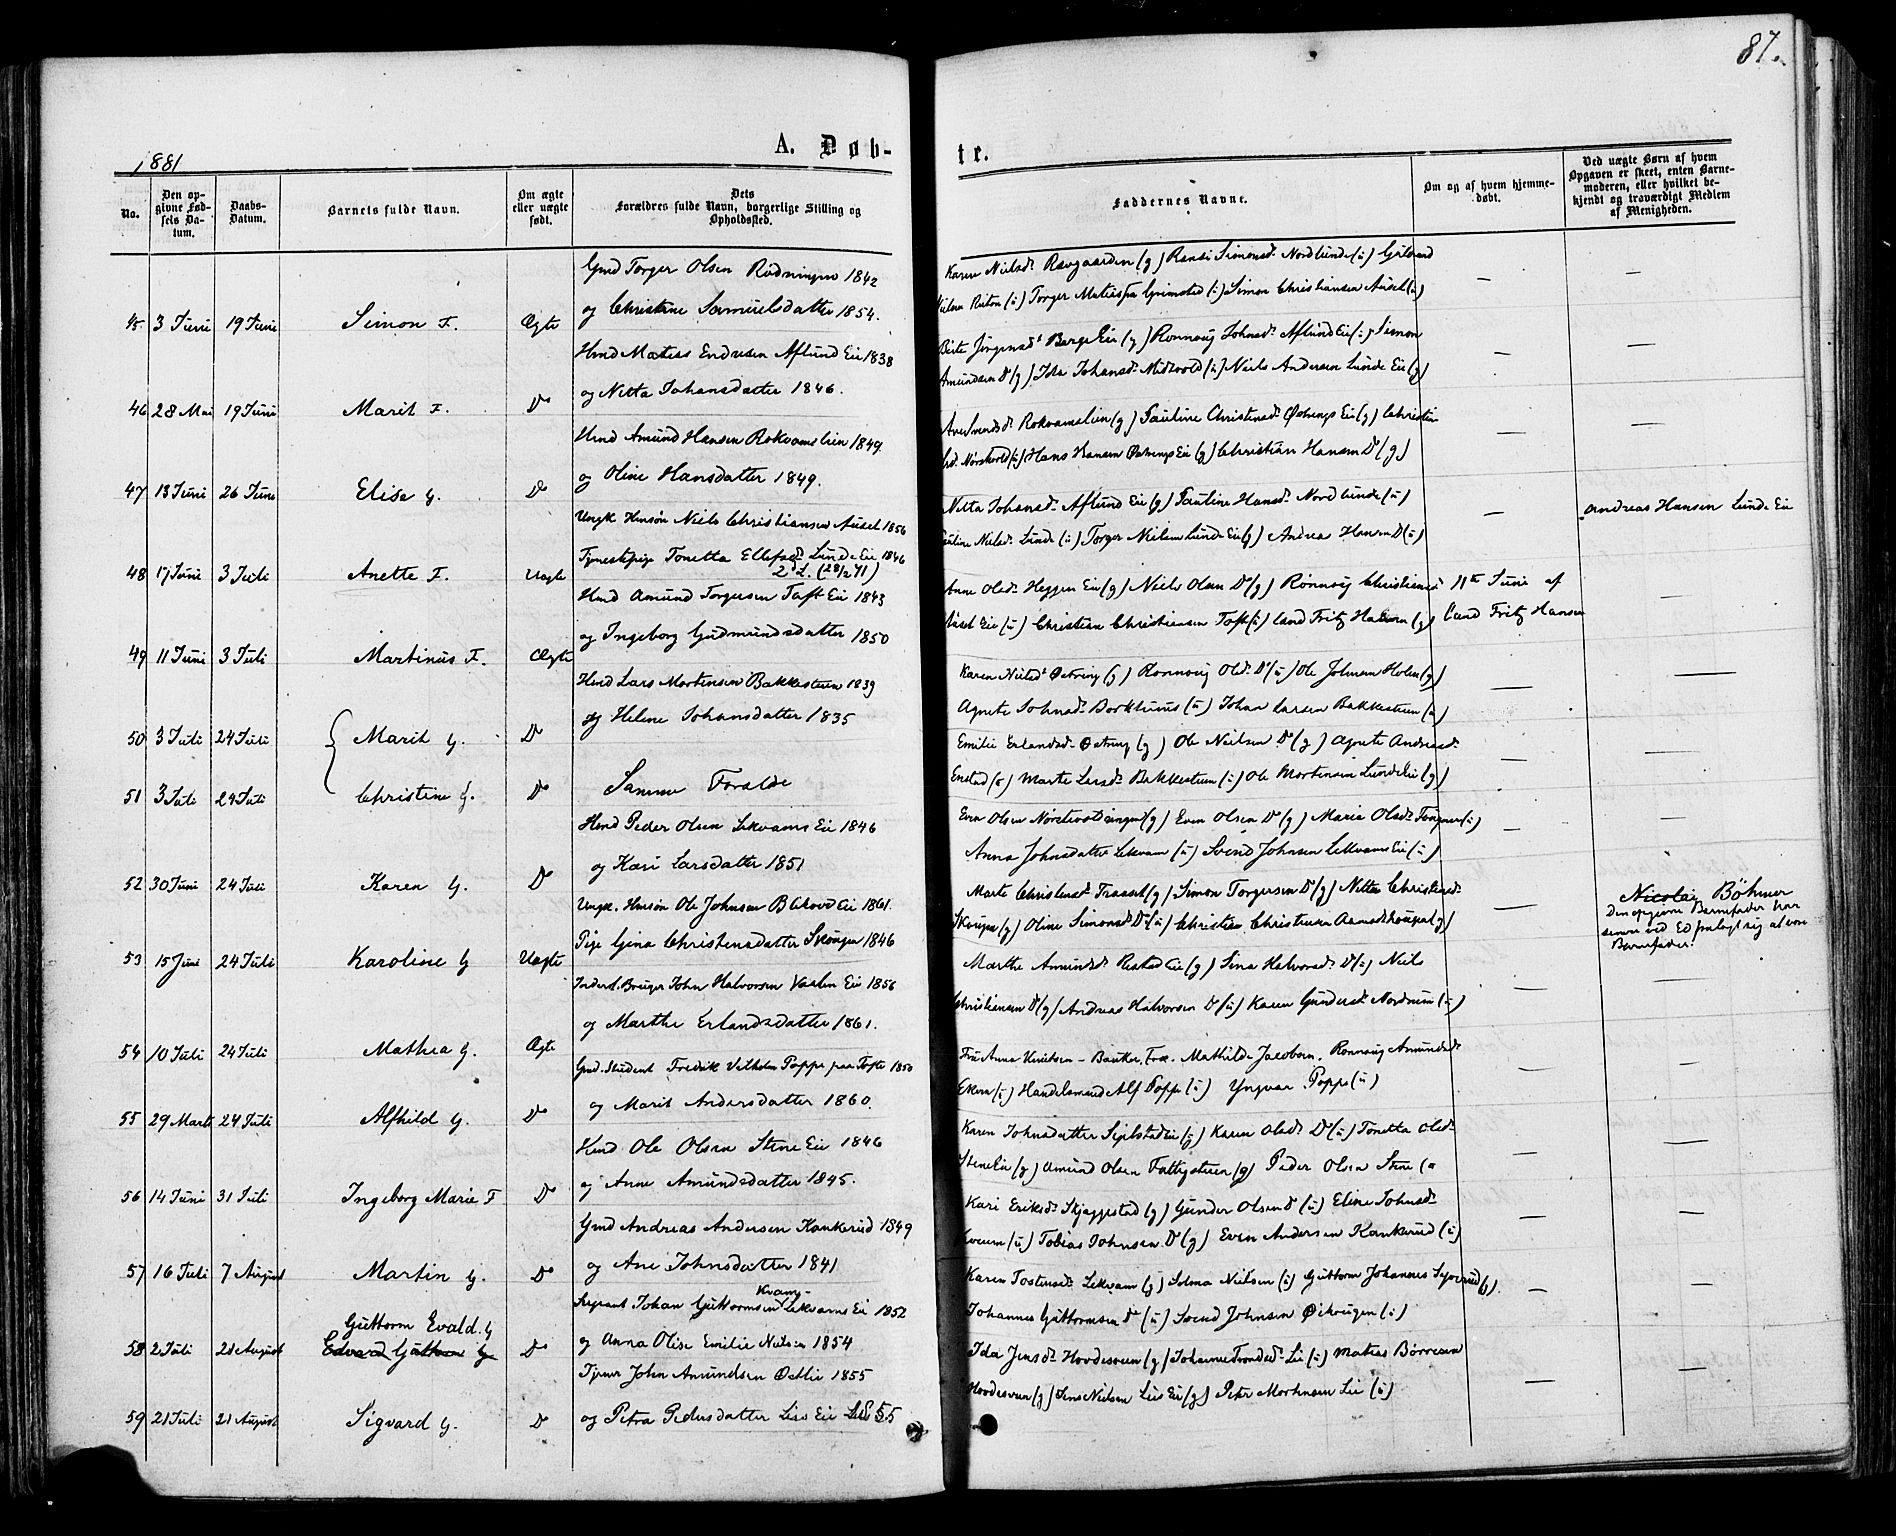 87.
1881
A. Døb-
te.
No.
Den op-
givne Fød-
sels Da-
tum.
Daabs-
Datum.
Barnets fulde Navn.
Om ægte
eller uægte
født.
Dets
Forældres fulde Navn, borgerlige Stilling og
Opholdssted.
Faddernes Navne.
Om og af hvem hjemme-
døbt.
Ved uægte Børn af hvem
Opgaven er skeet, enten Barne-
moderen, eller hvilket be-
kjendt og troværdigt Medlem
af Menigheden.
45. 3 Juni 19 Juni Simon F. Ægte
Gmd Torger Olsen Rødningen 1842
og Christine Samuelsdatter 1854.
Karen Nielsd. Ravgaarden (g) Randi Simonsd. Nordlunde (u)
Torger Matias Grimstad (u) Simon Christiansen Auset (u)
46 28 Mai 19 Juni Marit F. Do
Hmd Matias Endresen Aflund Eie 1838
og Nitta Johansdatter 1846.
Berte Jørgensd. Berge Eie (g) Rønnaug Johnsd. Aflund Eie (u) Simon
Amundsen Do (g) Ida Johansd. Midtvold (u) Niels Andersen Lunde Eie (g)
47 13 Juni 26 Juni Elise G. Do
Hmd Amund Hansen Rokvamslien 1849.
og Oline Hansdatter 1849.
Rokvamslien (g) Pauline Christensd. Østrengs Eie (g) Christin
Hans Hansen Østrengs Eie (g) Christian Hansen Do (g)
48 17 Juni 3 Juli Anette F. Uægte
Ungk. Hmsøn Niels Christiansen Auset 1856
Tjenestpige Tonetta Ellefsd. Lunde Eie 1846
2d L. (28/2 71)
Nitta Johansd. Aflund Eie (g) Pauline Hansd. Nordlunde (u)
Pauline Nielsd. Lunde (u) Torger Nielsen Lunde Eie (g) Andrea Hansen D (u)
Andreas Hansen Lunde Eie
49 11 Juni 3 Juli Martinus F. Ægte
Hmd Amund Torgersen Toft Eie 1843
og Ingeborg Gudmundsdatter 1850
Anne Olsd. Heggen Eie (g) Niels Olsen Do (g) Rønnaug Christiansd.
Auset Eie (u) Christian Christiansen Toft (u) Cand Fritz Hansen (g)
11te Juni af
Cand Fritz Hansen
50 3 Juli 24 Juli Marit G. Do
Hmd Lars Mortensen Bakkesteen 1839
og Helene Johansdatter 1835
Karen Nielsd. Østreng (g) Rønnaug Olsd. Do (u) Ole Johnsen Holen (g)
Agnete Johnsd. Borkhuus (u) Johan Larsen Bakkesteen (u)
51 3 Juli 24 Juli Christine G. Do
Samme Foralde
Emilie Erlandsd. Østreng (g) Ole Nielsen Do (g) Agnete Andreasd.
Enstad (u) Marte Larsd. Bakkesteen (u) Ole Mortensen Lunde Eie (g)
52 30 Juni 24 Juli Karen G. Do
Hmd Peder Olsen Lekvams Eie 1846
og Kari Larsdatter 1851
Even Olsen (g) Even Olsen Do (g) Maria Olsd. (u)
Anna Johnsdatter Lekvam (u) Svend Johnsen Lekvams Eie (u)
53 15 Juni 24 Juli Karoline G Uægte
Ungk. Hmsøn Ole Johnsen Eie 1861.
Pige Gina Christensdatter Skougen 1846
Marte Christensd. Traaset (g) Simon Torgersen Do (g) Nitta Christensd.
Skougen (g) Oline Simonsd. Do (u) Christian Christensen (g)
Nicolai Bøhmer
Den opgivne Barnefader har
senere ved Ed fralagt sig at være
Barnefader.
54 10 Juli 24 Juli Mathea G. Ægte
Inderst. Bruger John Halvorsen Vaalen Eie 1856
og Marthe Erlandsdatter 1861.
Marthe Amundsd. Eie (g) Sina Halvorsd. Do (u) Niels
Christiansen Do (g) Andreas Halvorsen Do (u) Karen Gundersd. Nordrum (u)
55 29 Marts 24 Juli Alfhild G. Do
Gmd. Student Fredrik Vilhelm Poppe paa Tofte 1850
og Marit Andersdatter 1860.
Fru Anna Knutsen - Banker, Frøk. Mathilde Jacobsen, Rønnaug Amundsd.
Ekern (u) Handelsmand Alf Poppe (u) Yngvar Poppe (u)
56 14 Juni 31 Juli Ingeborg Marie F Do
Hmd Ole Olsen Stene Eie 1846
og Anne Amundsdatter 1845.
Karen Johnsdatter Sigstad Eie (g) Karen Olsd. Do (u) Tonetta Olsd.
Stene Eie (g) Amund Olsen (g) Peder Olsen Stene (u
57 16 Juli 7 August Martin G. Do
Gmd Andreas Andersen Kankerud 1849
og Ane Johnsdatter 1841
Kari Eriksd. Skjæggestad (g) Gunder Olsen D (u) Eline Johnsd.
(u) Tobias Johnsen Do (g) Even Andersen Kankerud (u)
58 2 Juli 21 August Guttorm Evald. G
Edvard Guttorm G Do
Sergeant Johan Guttormsen Kvam- Lekvams Eie 1852
og Anna Olise Emilie Nielsen 1854
Karen Tostensd. Lekvam (g) Selma Nielsen (u) Guttorm Johannes (g).
Johannes Guttormsen Do (u) Svend Johnsen (u)
59 21 Juli 21 August Sigvard G. Do
Tjener John Amundsen Østlie 1855
og Petra Pedersdatter Lise Eie 55
Ida Jensd. Hovdesveen (g) Johanne Trondsd. Lie (u) Matias Børresen
Hovdesveen (g) Jens Nielsen Lies Eie (g) Peter Mortensen Lie (u)